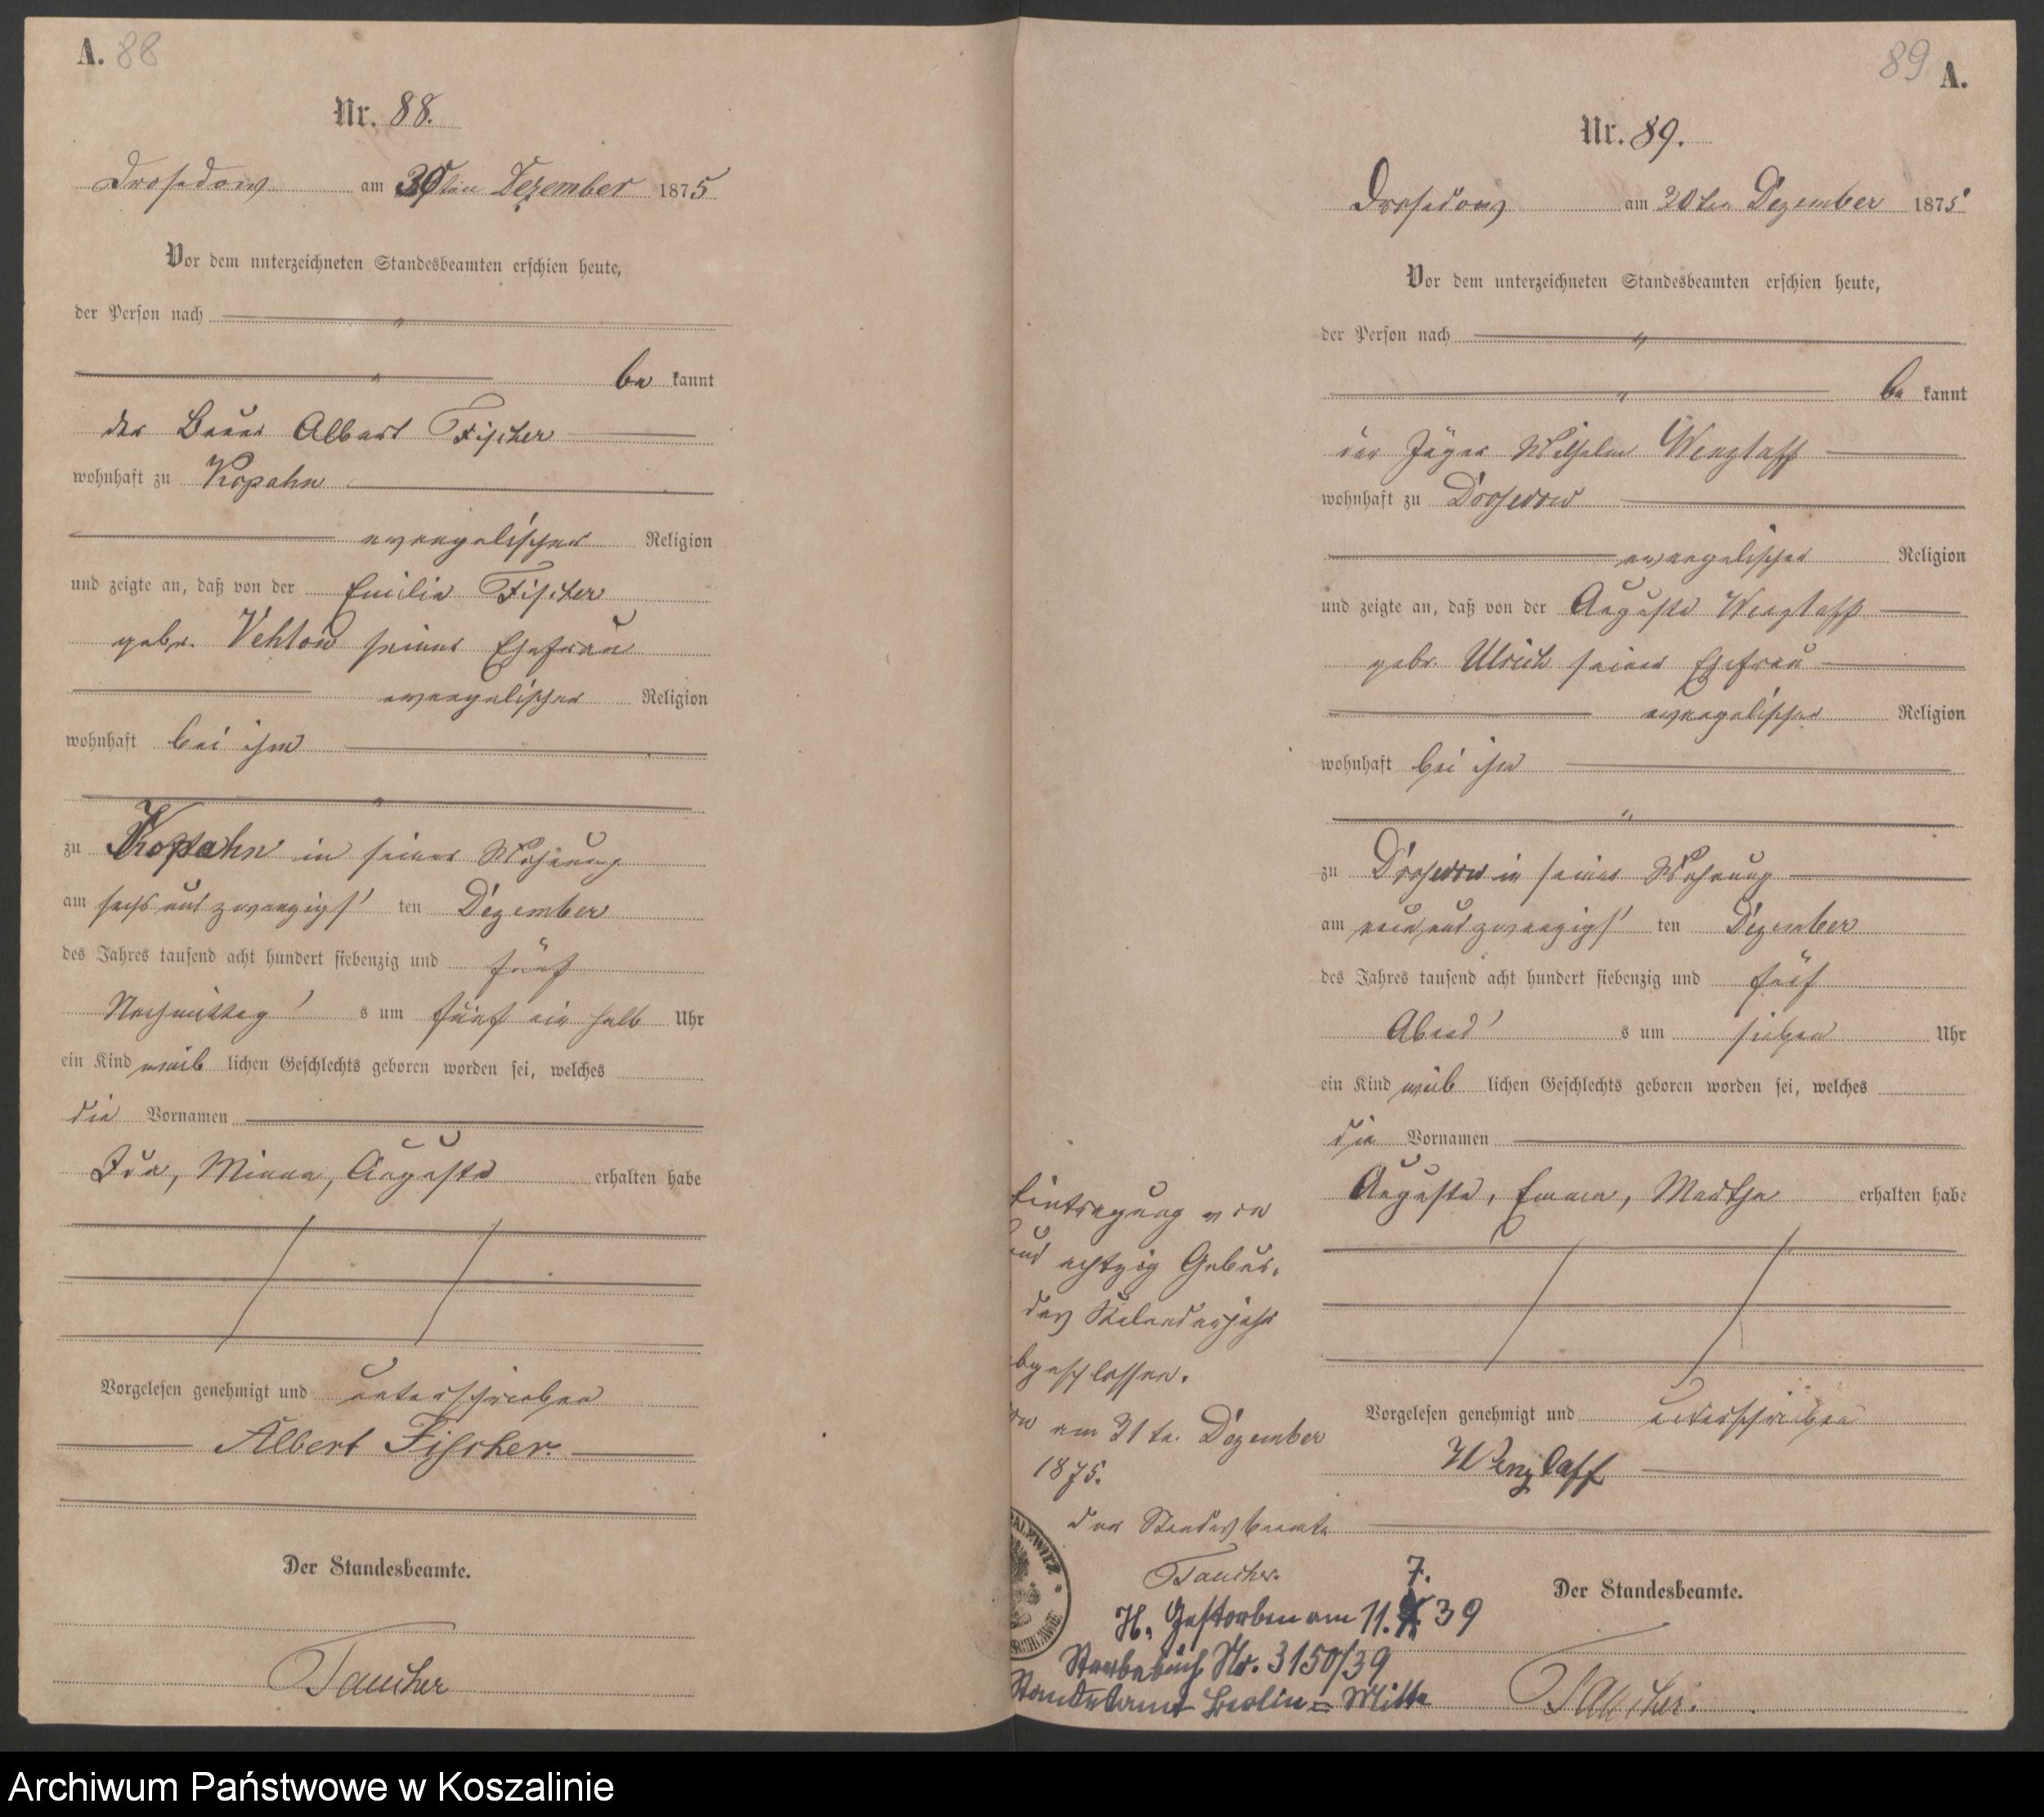 A. 88
Nr. 88.
Drosedow am 30ten Dezember 1875
Vor dem unterzeichneten Standesbeamten erschien heute,
der Person nach
be kannt
der Bauer Albert Fischer
wohnhaft zu Kopahn
evangelischer Religion
und zeigte an, daß von der Emilie Fischer
gebr. Vehlow seiner Ehefrau
evangelischer Religion
wohnhaft bei ihm
zu Kopahn in seiner Wohnung
am sechs und zwanzigs' ten Dezember
des Jahres tausend acht hundert siebenzig und fünf
Nachmittag' s um fünf ein halb Uhr
ein Kind weib lichen Geschlechts geboren worden sei, welches
die Vornamen
Ida, Minna, Auguste erhalten habe
Vorgelesen genehmigt und unterschrieben
Albert Fischer.
Der Standesbeamte.
Taucher
89 A.
Nr. 89.
Drosedow am 30ten Dezember 1875
Vor dem unterzeichneten Standesbeamten erschien heute,
der Person nach
be kannt
der Jäger Wilhelm Wenzlaff
wohnhaft zu Drosedow
evangelischer Religion
und zeigte an, daß von der Auguste Wenzlaff
gebr. Ulrich seiner Ehefrau
evangelischer Religion
wohnhaft bei ihm
zu Drosedow in seiner Wohnung
am neun und zwanzigs' ten Dezember
des Jahres tausend acht hundert siebenzig und fünf
Abend' s um sieben Uhr
ein Kind weib lichen Geschlechts geboren worden sei, welches
die Vornamen
Auguste, Emma, Martha erhalten habe
Vorgelesen genehmigt und unterschrieben
Wenzlaff
Der Standesbeamte.
Taucher.
Eintragung von
und achtzig Gebur,
das Kalenderjahr
bgeschlossen.
am 31te. Dezember
1875.
der Standesbeamte
Taucher.
7.
H. Gestorben am 11. 39
Sterbebuch Nr. 3150/39
Standesamt Berlin = Mitte
Archiwum Państwowe w Koszalinie